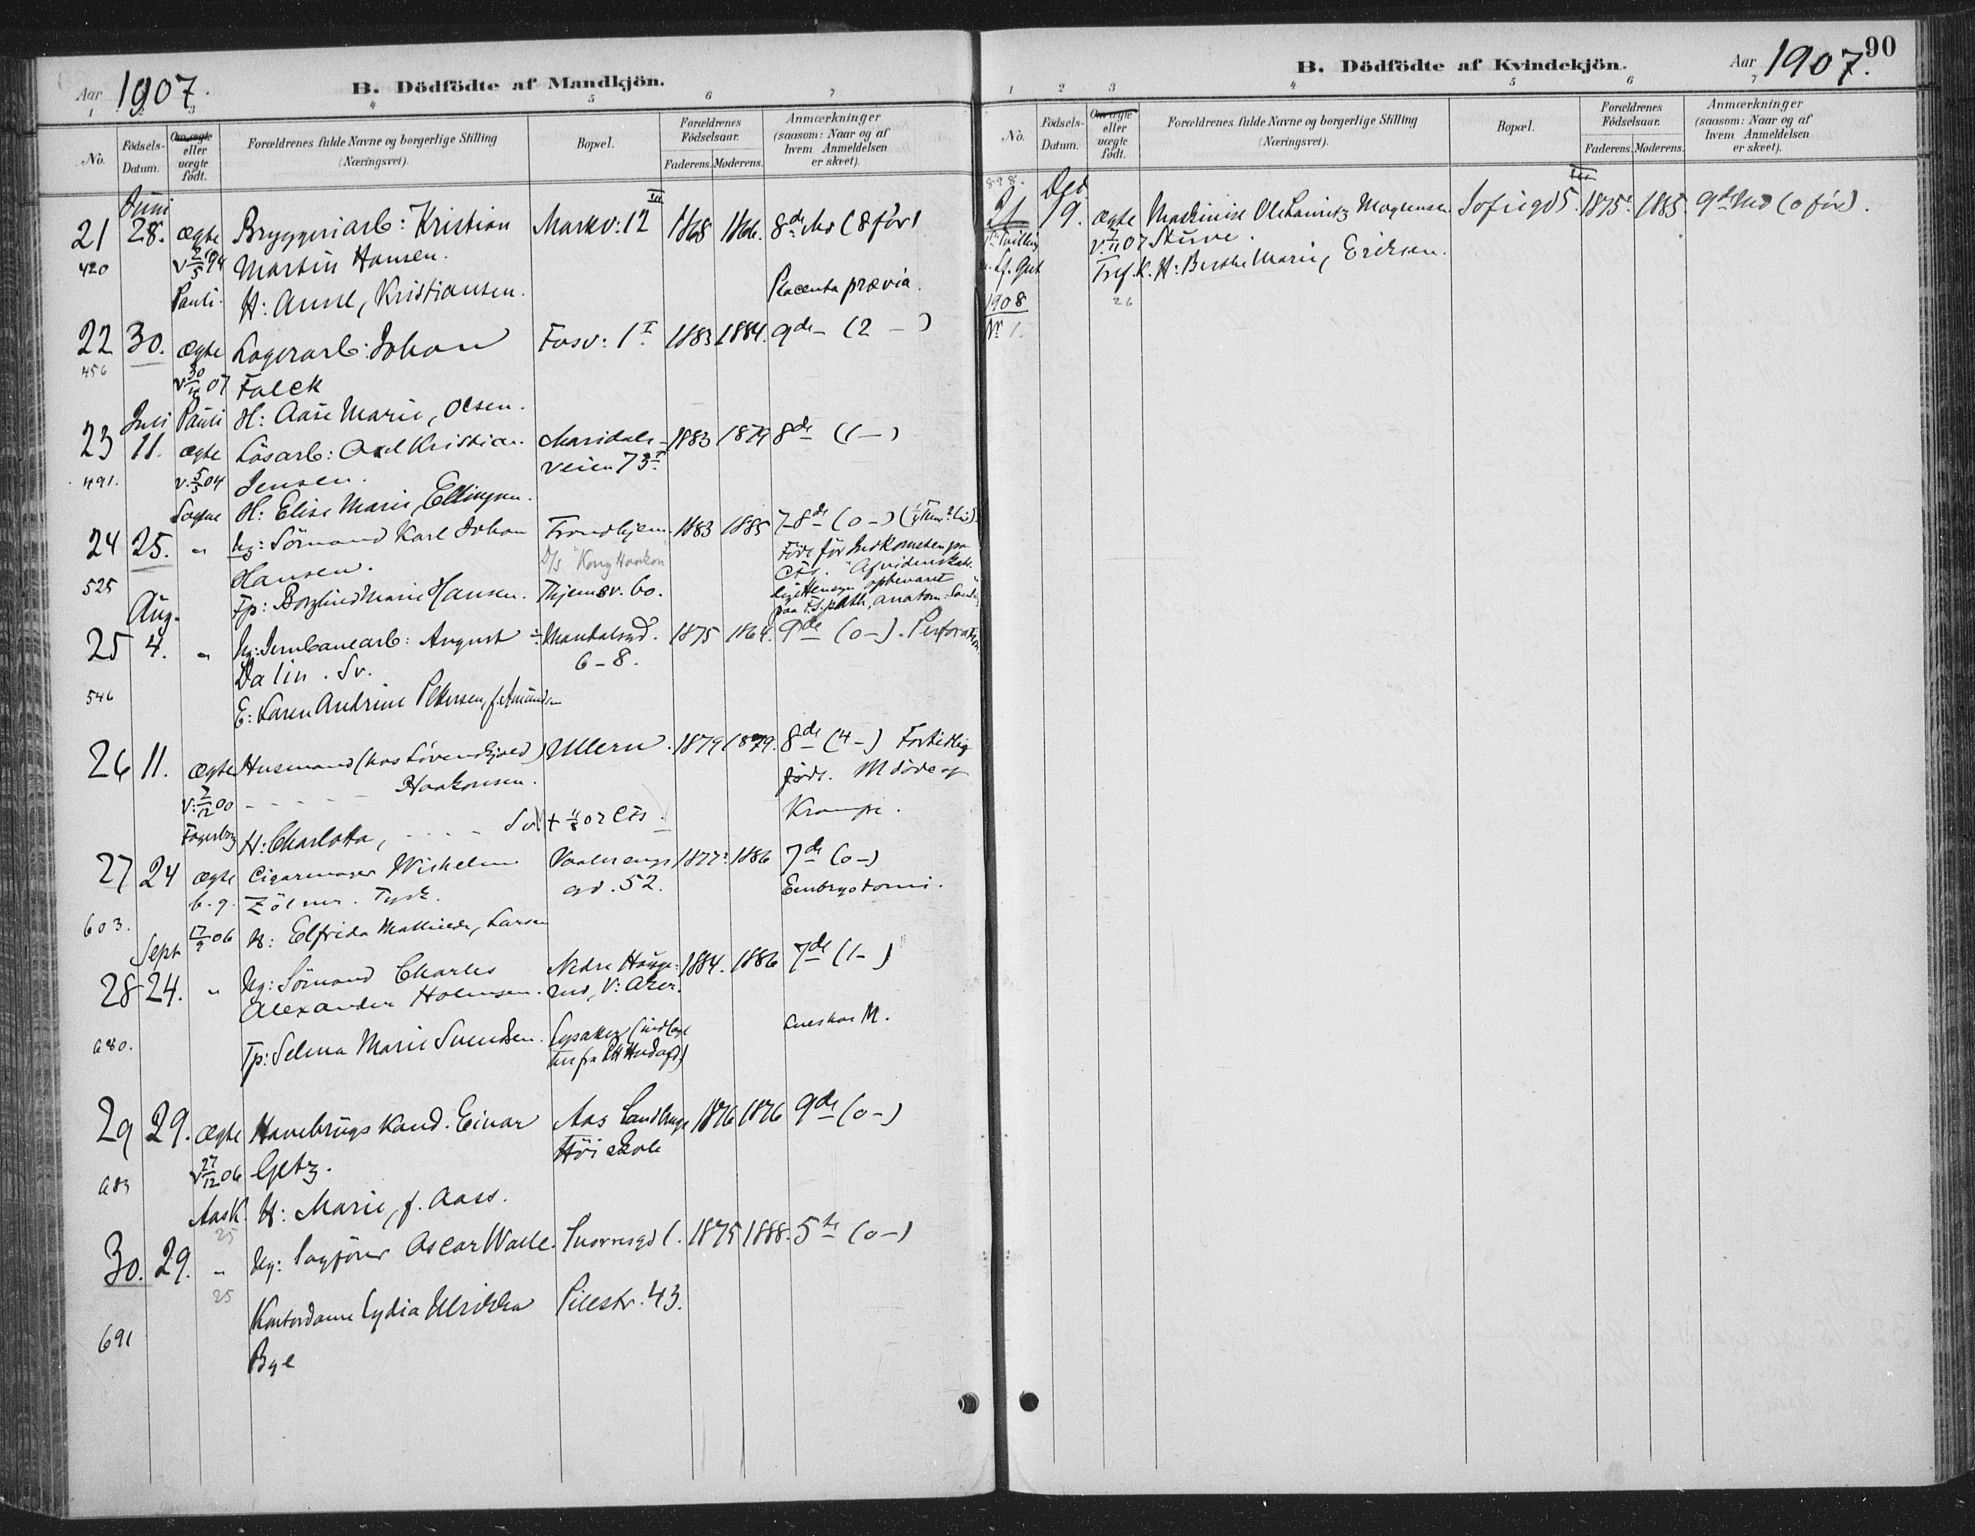 Aar 1907.
B. Dödfödte af Mandkjön.
1 3 4 5 6 7
No.
Födsels-Datum.
Om ægte eller uægte födt.
Forældrenes fulde Navne og borgerlige Stilling (Næringsvei).
Bopæl.
Forældrenes Födselsaar.
Faderens. Moderens.
Anmærkninger (saasom: Naar og af hvem Anmeldelsen er skeet).
Juni
21 28. ægte Bryggeriarb: Kristian Markv: 12 III 1868 1866. 8de Md (8 før)
420 Martin Hansen.
Pauli. H: Anne, Kristiansen. Placenta prævia.
22 30. ægte Lagerarb: Johan Fosv: 1 I 1883 1884. 9de – (2 – )
456 v 30/ 07 Falck
Juli Pauli H: Aase Marie, Olsen.
23 11. ægte Løsarb: Axel Kristian Maridals- 1883 1879 8de (1 – )
491. v. 5/5 04 Jensen. veien 73 I
Sogne H: Elise Marie, Ellingsen.
24 25. „ Ug: Sömand Karl Johan Trondhjem 1883 1885 7-8de (0 – )
Hansen. D/s "Kong Haakon
525 Fp: Borghild Marie Hansen. Thjemsv. 60.
Aug.
25 4. „ Ug: Jernbanearb: August Mandalsgd. 1875 1864. 9de (0 – ). Perforation
Dalin. Sv. 6 – 8.
546 E: Karen Andrine Pettersen, f. Amundsen
26 11. ægte Husmand (hos Løvenskjold) Ullern. 1879 1879. 8de (4 – ) Fortidlig
v: 2/12 00 - - - - Haakonsen. født. M døde af
Fagerborg H: Charlotta, - - - - Sv. + 11/8 07 Krampe.
27 24 ægte Cigarmager Wilhelm Vaalerengs 1877. 1886 7de (0 – )
b. g. Zölner. Tysk. gd. 52. Embryotomi.
603. 17/9 06 H: Elfrida Mathilde, Larsen
Sept
28 24. „ Ug: Sömand Charles Nedre Hauge- 1884. 1886 7de (1 – )
Alexander Holmsen. rud, V: Aker.
680. Fp: Selma Marie Svendsen. Lysaker
29 29. ægte Havebrugskand. Einar Aas Landbrugs 1876 1876 9de (0 – )
683 v 27/12 06 Getz. Høiskole
Aas K. H: Marie, f. Aass.
25
30. 29. „ Ug: Sagfører Oscar Walle. Snorresgd 1. 1875 1888. 5te (0 – )
25
Kontordame Lydia Ulrikka Pilestr. 43.
691 Bye
90
B. Dödfödte af Kvindekjön.
Aar 1907.
1 2 3 4 5 6 7
No.
Födsels-Datum.
Om ægte eller uægte födt.
Forældrenes fulde Navne og borgerlige Stilling (Næringsvei).
Bopæl.
Forældrenes Födselsaar.
Faderens. Moderens.
Anmærkninger (saasom: Naar og af hvem Anmeldelsen er skeet).
898.
Des
21 19. ægte Maskinist Ole Lauritz Magnussen Sofiegd 5. III 1875. 1885. 9de Md (0 før).
Tvilling v. 7/11 07 Skurve.
Gut Tref. K. H: Berthe Marie, Eriksen.
1908 26
Nr 1.